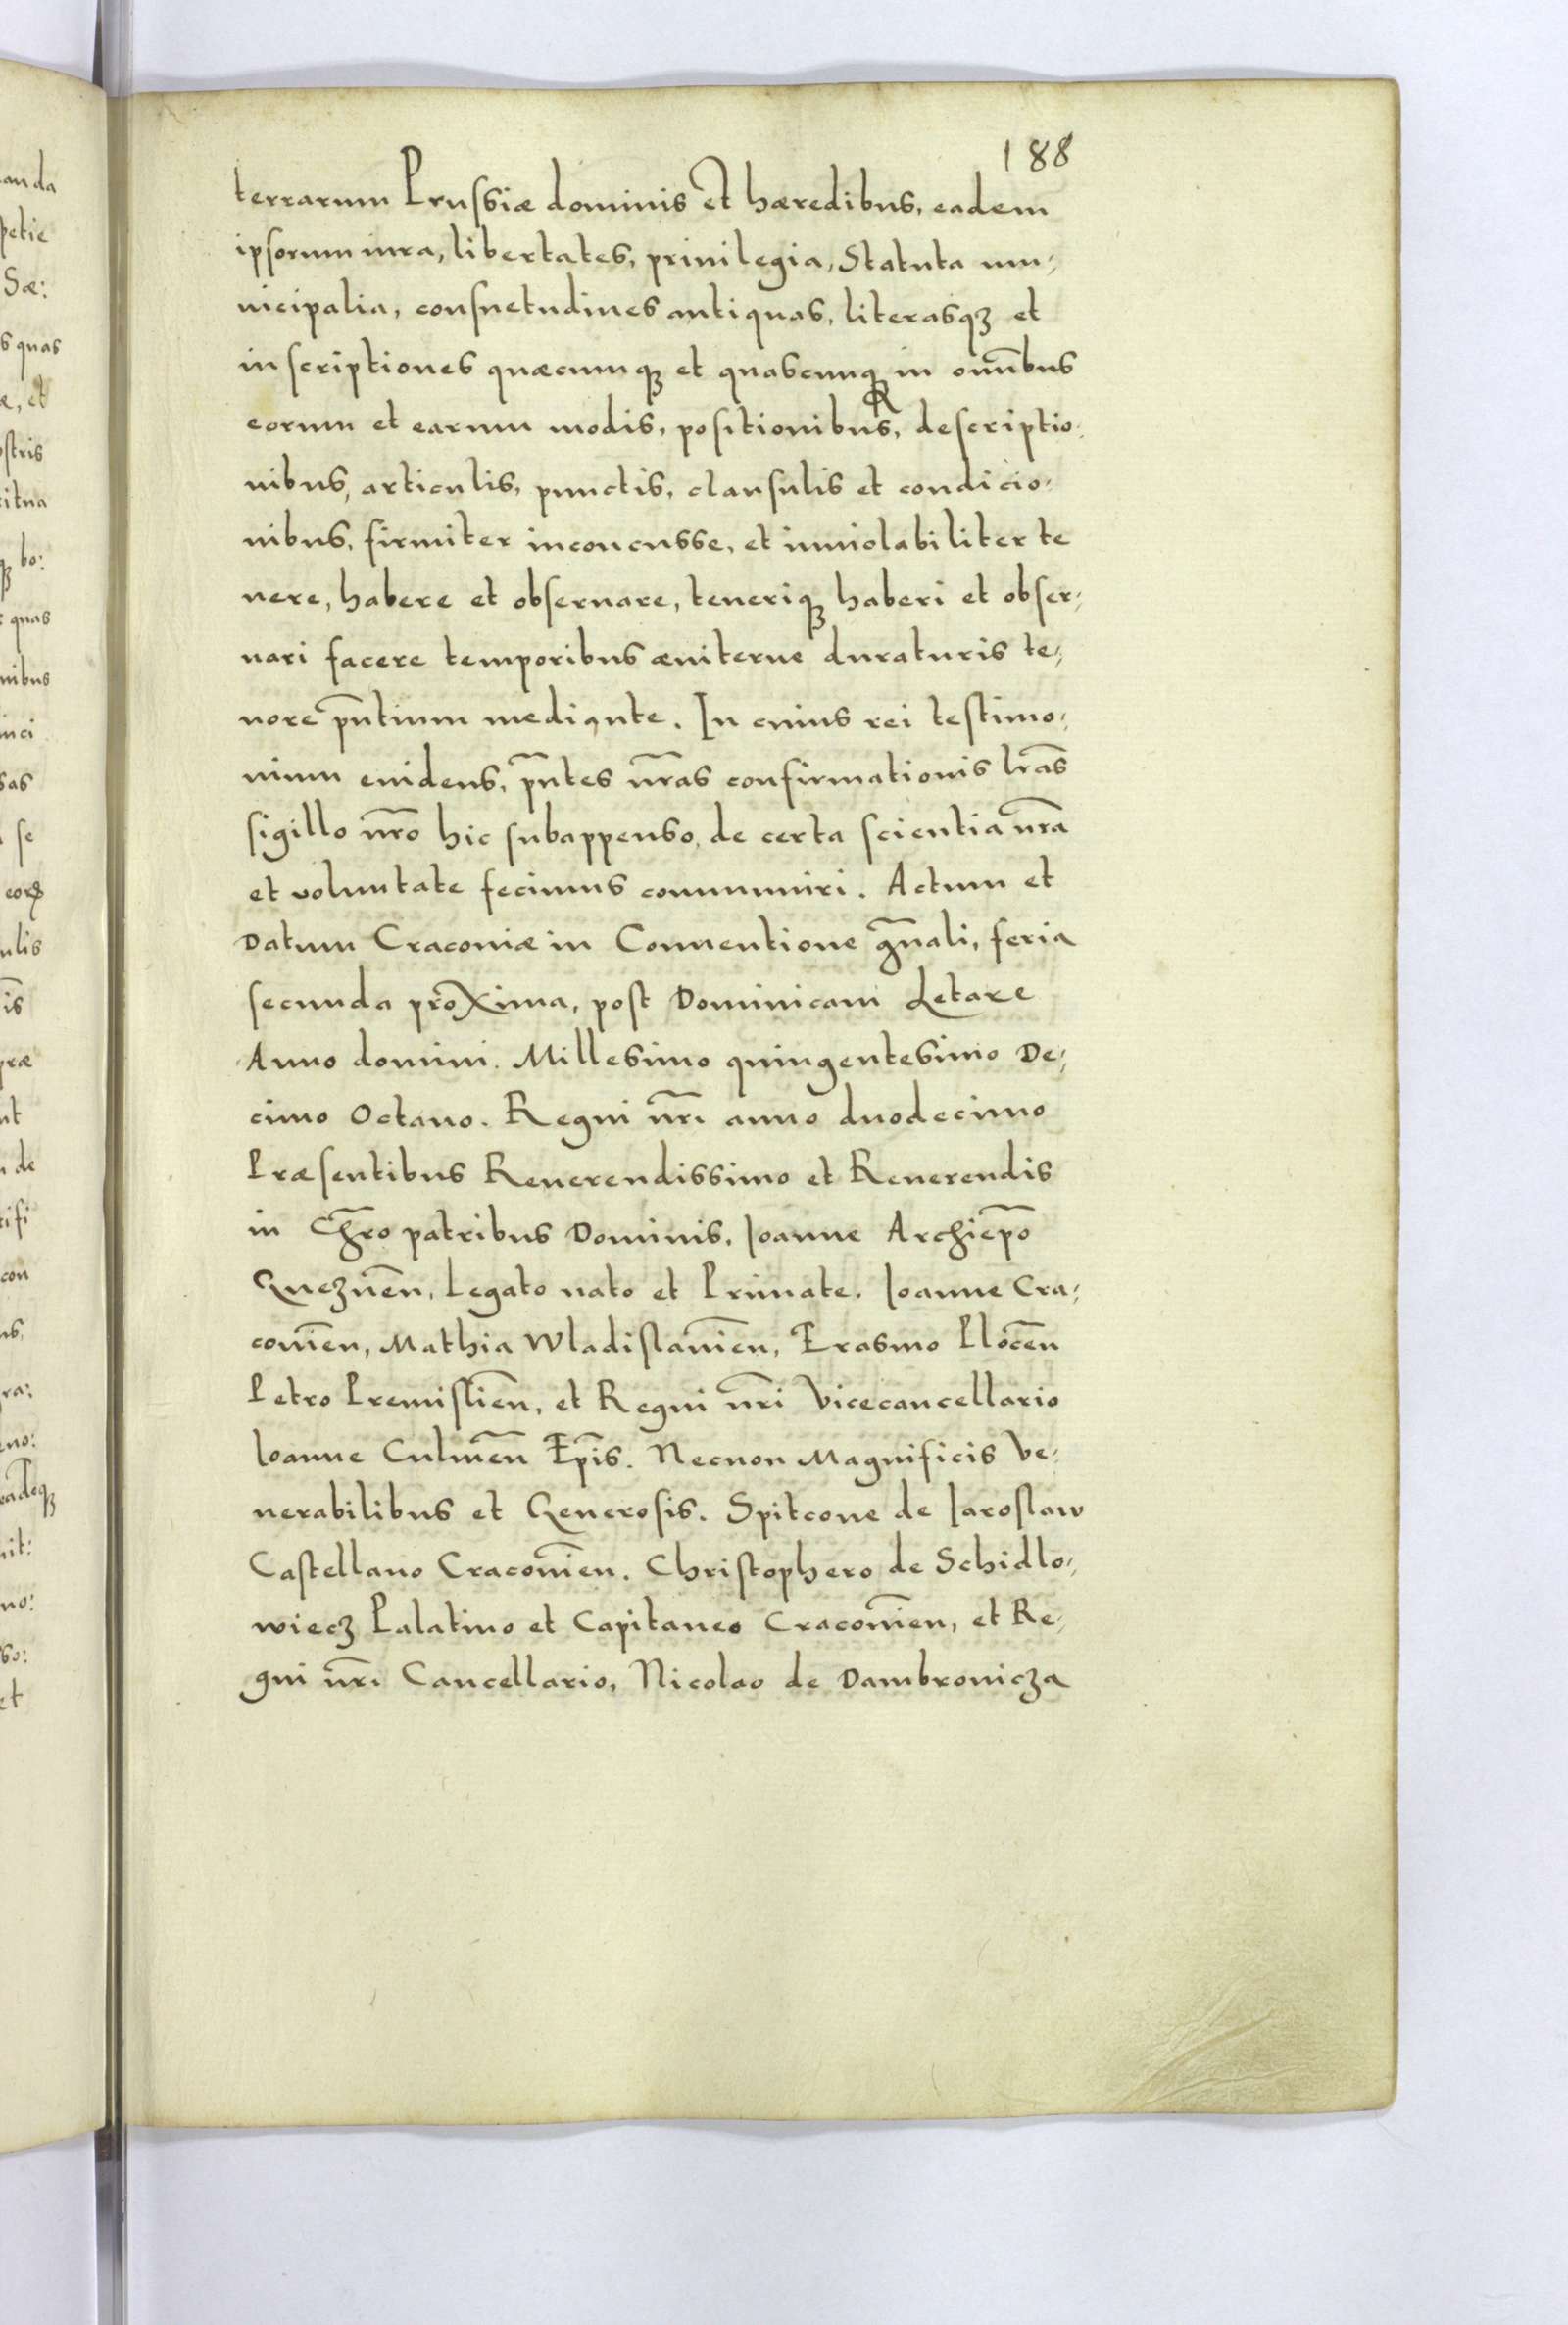 188
terrarum Prussiæ dominis et hæredibus, eadem
ipsorum iura, libertates, priuilegia, Statuta mu-
nicipalia, consuetudines antiquas, literasqꝫ et
inscriptiones quæcumqꝫ et quascunqꝫ in om̄ibus
eorum et earum modis, positionibus, descriptio-
nibus, articulis, punctis, clausulis et condicio-
nibus, firmiter inconcusse, et inuiolabiliter te
nere, habere et obseruare, teneriqꝫ haberi et obser-
uari facere temporibus æuiterne duraturis te-
nore p̄ntium mediante. In cuius rei testimo-
nium euidens, p̄ntes n̄ras confirmationis lr̄as
sigillo nr̄o hic subappenso, de certa scientia nr̄a
et voluntate fecimus communiri. Actum et
Datum Cracouiæ in Conuentione gn̄ali, feria
secunda proxima, post Dominicam Letare
Anno domini. Millesimo quingentesimo De-
cimo Octauo. Regni nr̄i anno duodecimo
Præsentibus Reuerendissimo et Reuerendis
in Chr̄o patribus Dominis, Ioanne Archiep̄o
Gneznēn, Legato nato et Primate. Ioanne Cra-
couien̄, Mathia Wladislauien̄, Erasmo Plocēn
Petro Premislien̄, et Regni nr̄i Vicecancellario
Ioanne Culmēn Ep̄is. Necnon Magnificis Ve-
nerabilibus et Generosis. Spitcone de Iaroslaw
Castellano Cracouien̄. Christophero de Schidlo-
wiecz Palatino et Capitaneo Cracouien̄, et Re-
gni nr̄i Cancellario, Nicolao de Dambrouicza
anda
petie
Sæ:
s quas
æ, et
ostris
bo:
quas
nibus
inci
sas
se
ulis
præ
nt
de
con
eno:
no:
et